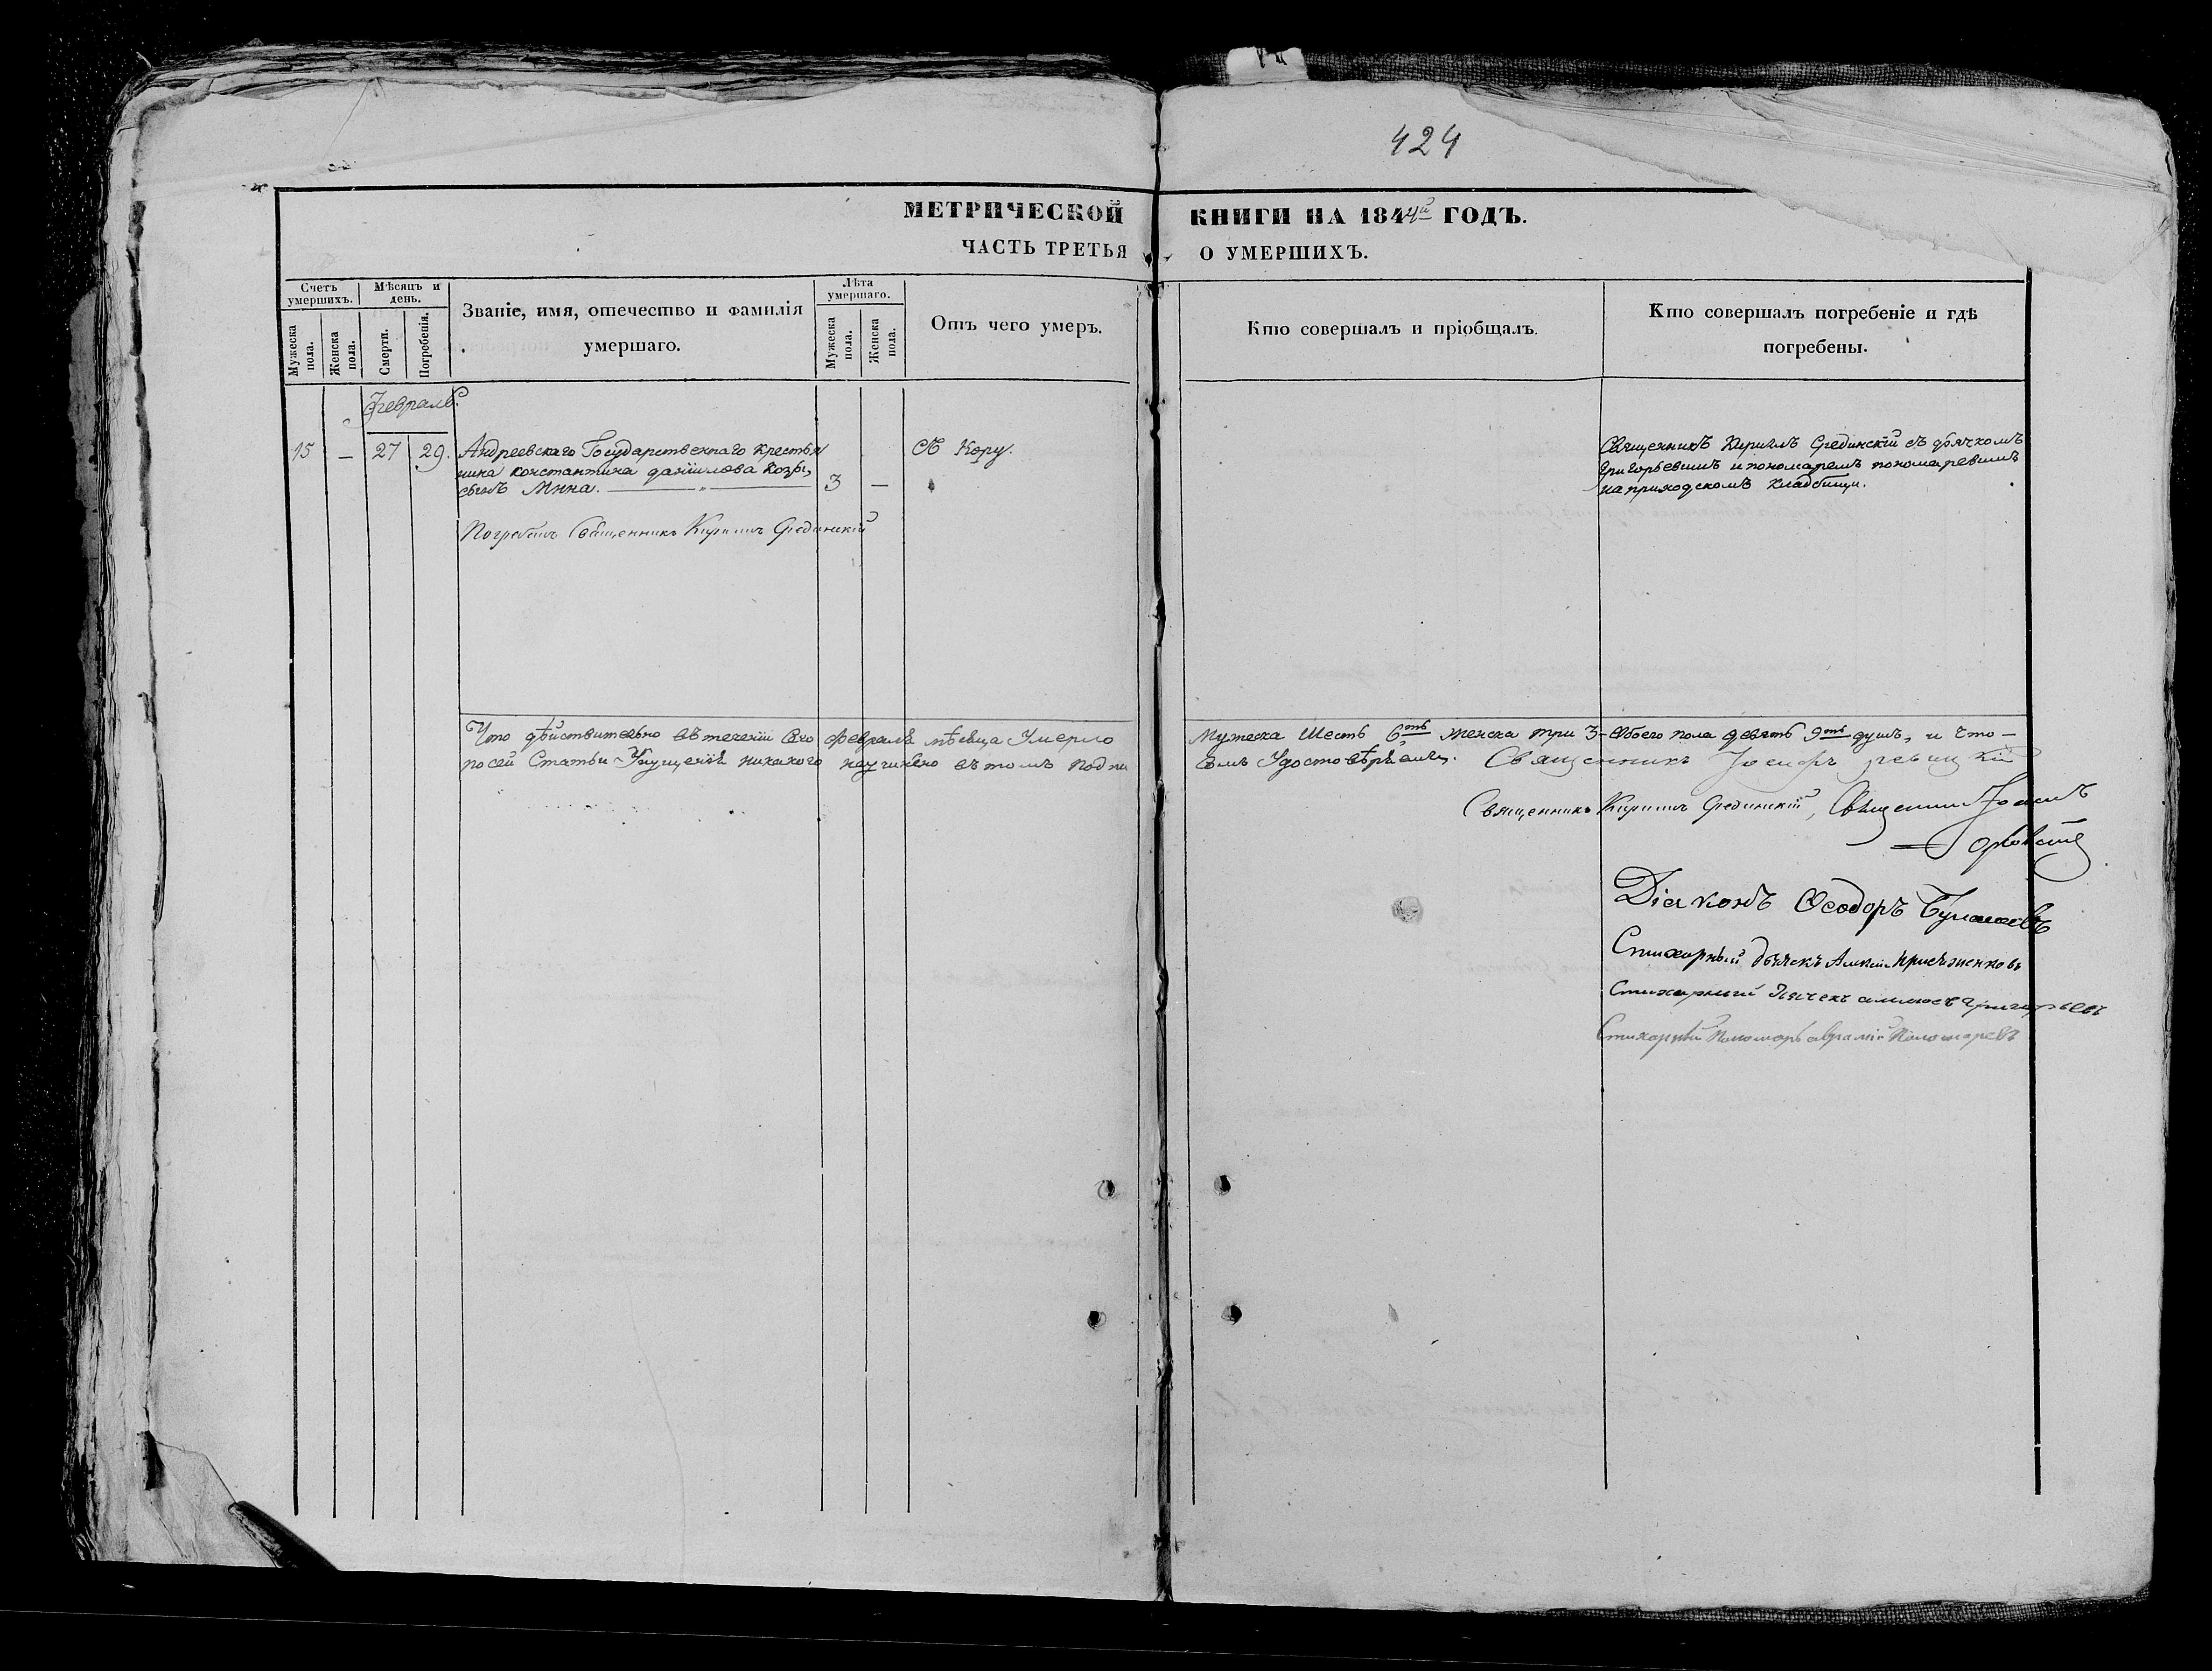 424
МЕТРИЧЕСКОЙ КНИГИ НА 1844й ГОДЪ.
ЧАСТЬ ТРЕТЬЯ О УМЕРШИХЪ.
Счетъ умершихъ.
Мужеска пола.
Женска пола.
Мѣсяцъ и день.
Смерти.
Погребенія.
Званіе, имя, отечество и фамилія умершаго.
Лѣта умершаго.
Мужеска пола.
Женска пола.
Отъ чего умеръ.
Кто совершалъ и пріобщалъ.
Кто совершалъ погребеніе и гдѣ погребены.
Февраль.
15 — 27 29. Андреевскаго Государственнаго крестья
нина константина данiилова козы,
сынъ Мина. 3 —
Отъ Кору.
Священникъ Кирилъ Срединскій съ дьячкомъ
Григорьевымъ и пономаремъ пономаревымъ
на приходскомъ кладбищи.
Погребалъ Священникъ Кирилъ Срединскій
Что дѣйствительно въ теченіи сего Февраля мѣсяца Умерло Мужеска Шесть 6ть женска три 3 — обоего пола девять 9ть душъ, и что —
по сей Статьи Упущенія никакого неучинено въ томъ подпи
Удостовѣряемъ. Священникъ Іосифъ
Священникъ Кирилъ Срединскій, Священникъ Іоаннъ
Діаконъ Ѳеодоръ
Стихарный дьячекъ
Стихарный дьячекъ Григорьевъ
Стихарный Пономарь Аврамій Пономаревъ